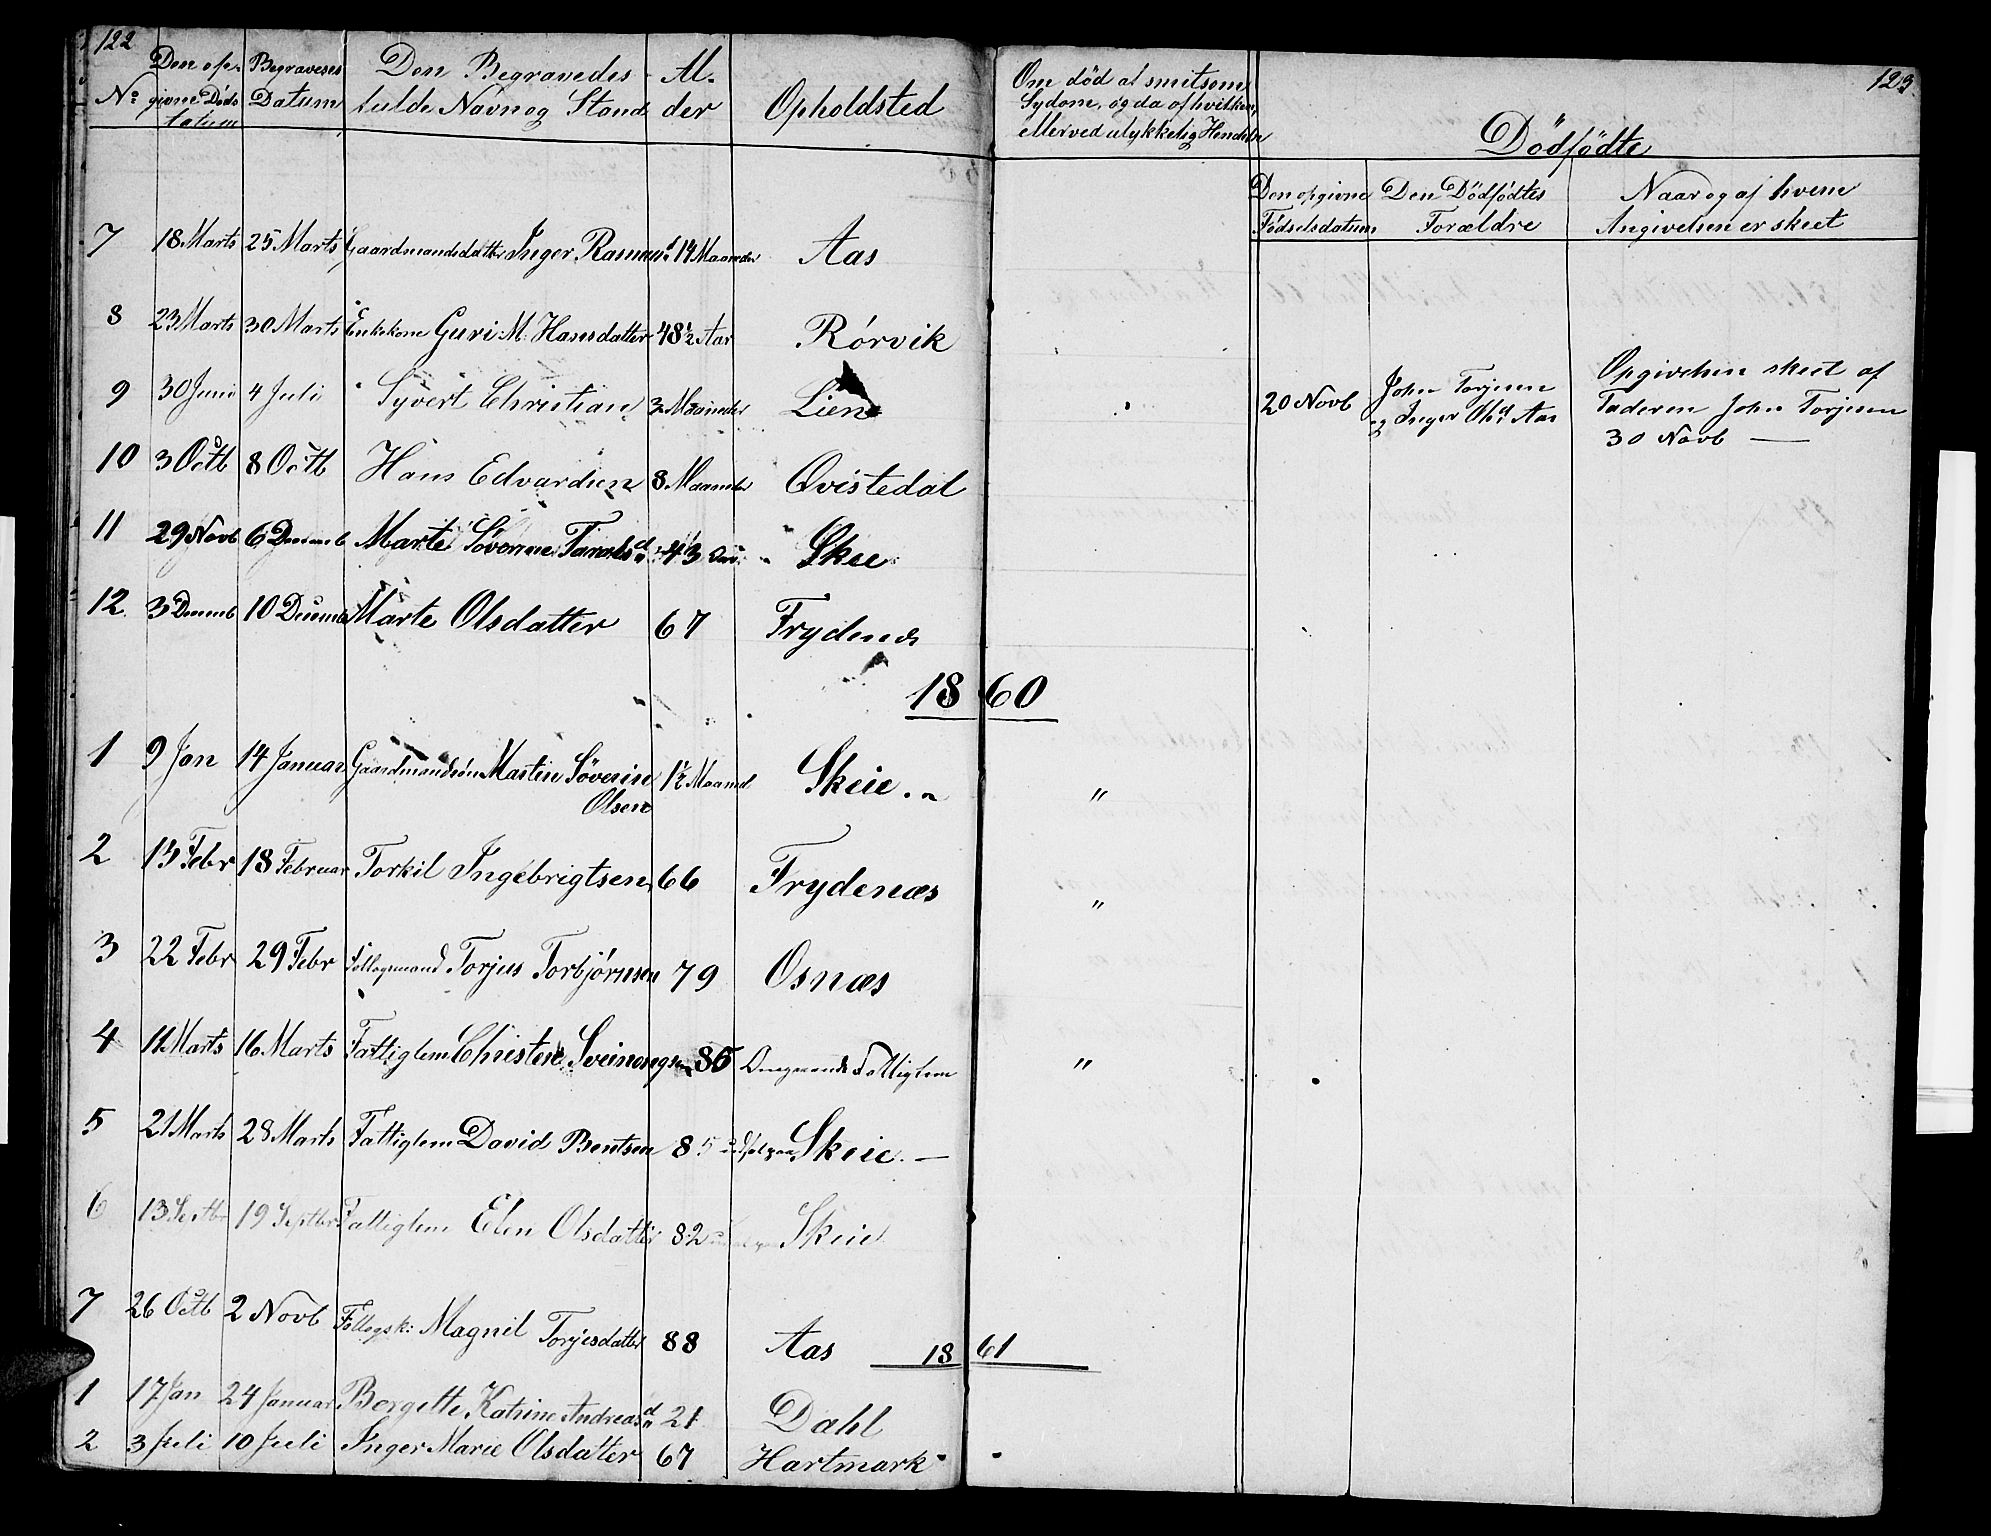 122
No Den opgivne Dödsdatum Begravesesdatum Den Begravedes fulde Navn og Stand Alder Opholdsted
Om död at smitsom Sydom, og da af hvilken, eller ved ulykkelig Hendelse
123
Dödfödte
Den opgivne Födselsdatum Den Dödfödtes Forældre Naar og af hvem Angivelsen er skeet
7 18 Marts 25 Marts Gaardmandsdatter Inger Rasmusd 14 Maaneder Aas
8 23 Marts 30 Marts Enkekone Guri M. Hansdatter 48 1/2 Aar Rörvik
9 30 Juni 4 Juli Syvert Christian 3 Maaneder Lien
20 Novb John Torjesen og Inger Olsd Aas Opgivelsen skeet af Faderen John Torjesen 30 Novb —
10 3 Octb 8 Octb Hans Edvardsen 8 Maaneder Qvistedal
11 29 Novb 6 Decemb Marte Söverine Taralsd 43 Skee
12. 3 Decemb 10 Decemb Marte Olsdatter 67 Frydenæs
1860
1 9 Jan 14 Januar Gaardmandssön Martin Söverin Olsen 1 1/2 Maaned Skeie. "
2 13 Febr 18 Februar Torkil Ingebrigtsen 66 Frydenæs "
3 22 Febr 29 Febr Föllogsmand Torjus Torbjörnsen 79 Osnæs
4 11 Marts 16 Marts Fattiglem Christen Sveinongsen 86 Omgaaende Fattiglem "
5 21 Marts 28 Marts Fattiglem David Bentsen 85 Skeie. —
6 13 Septbr 19 Septbr Fattiglem Elen Olsdatter 82 Skeie
7 26 Octb 2 Novb Föllogsk: Magnil Torjesdatter 88 Aas
1861
1 17 Jan 24 Januar Borgette Katrine Andreasd 21 Dahl
2 3 Juli 10 Juli Inger Marie Olsdatter 67 Hartmark